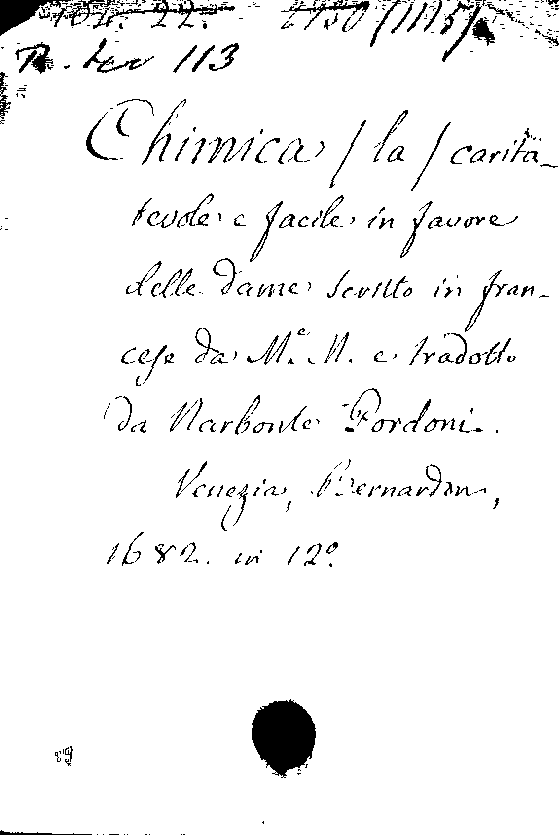 104. 22.
R. Ler 113
Chimica / la / carita-
tevole e facile in favore
delle dame scritto in fran-
cese da M.e M. e tradotto
da Narbonte Pordoni.
Venezia, Bernardon,
1682. in 12º
89